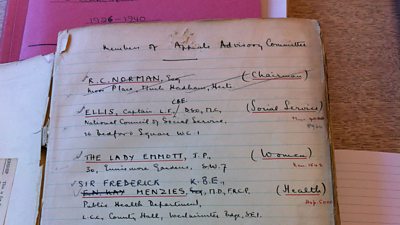 1926-1940
Members of Appeals Advisory Committee
R.C. NORMAN, Esq (Chairman)
Moor Place, Much Hadham, Herts
CBE.
ELLIS, Captain L.F., DSO, M.C, (Social Service)
National Council of Social Service,
26 Bedford Square W.C.1
THE LADY EMMOTT, J.P., (Women)
30, Ennismore Gardens, S.W.7
SIR FREDERICK K.B.E.,
MENZIES, Esq, M.D, F.R.C.P. (Health)
Public Health Department,
L.C.C. County Hall, Westminster Bdge, S.E.1.